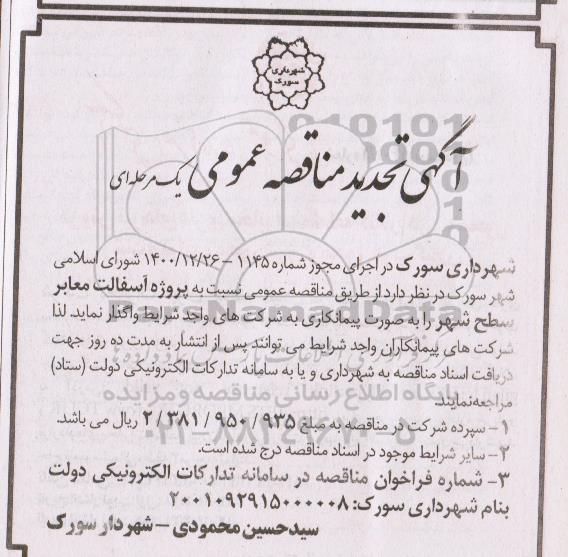 شهرداری
سورک
آگهی تجدید مناقصه عمومی یک مرحله‌ای
شهرداری سورک در اجرای مجوز شماره ۱۱۴۵ – ۱۴۰۰/۱۲/۲۶ شورای اسلامی
شهر سورک در نظر دارد از طریق مناقصه عمومی نسبت به پروژه آسفالت معابر
سطح شهر را به صورت پیمانکاری به شرکت های واجد شرایط واگذار نماید. لذا
شرکت های پیمانکاران واجد شرایط می توانند پس از انتشار به مدت ده روز جهت
دریافت اسناد مناقصه به شهرداری و یا به سامانه تدارکات الکترونیکی دولت (ستاد)
مراجعه نمایند.
پایگاه اطلاع رسانی مناقصه و مزایده
۱- سپرده شرکت در مناقصه به مبلغ ۹۳۵ / ۹۵۰ / ۳۸۱ / ۲ ریال می باشد.
۰۲۱-۸۸۳۴۹۶۷۰-۵
۲- سایر شرایط موجود در اسناد مناقصه درج شده است.
۳- شماره فراخوان مناقصه در سامانه تدارکات الکترونیکی دولت
بنام شهرداری سورک: ۲۰۰۱۰۹۲۹۱۵۰۰۰۰۰۸
سیدحسین محمودی – شهردار سورک